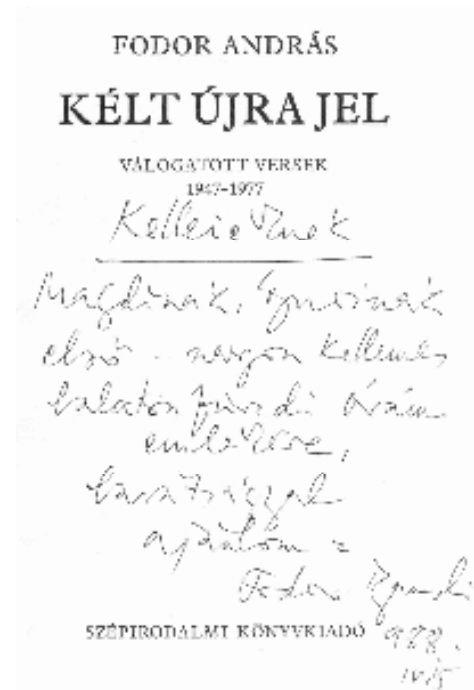 FODOR ANDRÁS
KÉLT ÚJRA JEL
VÁLOGATOTT VERSEK
1947–1977
Magdinak,
első – nagyon kellemes
balatonfüredi órám
emlékére,
barátsággal
ajánlom :
Fodor András
SZÉPIRODALMI KÖNYVKIADÓ 988.
IV. 15